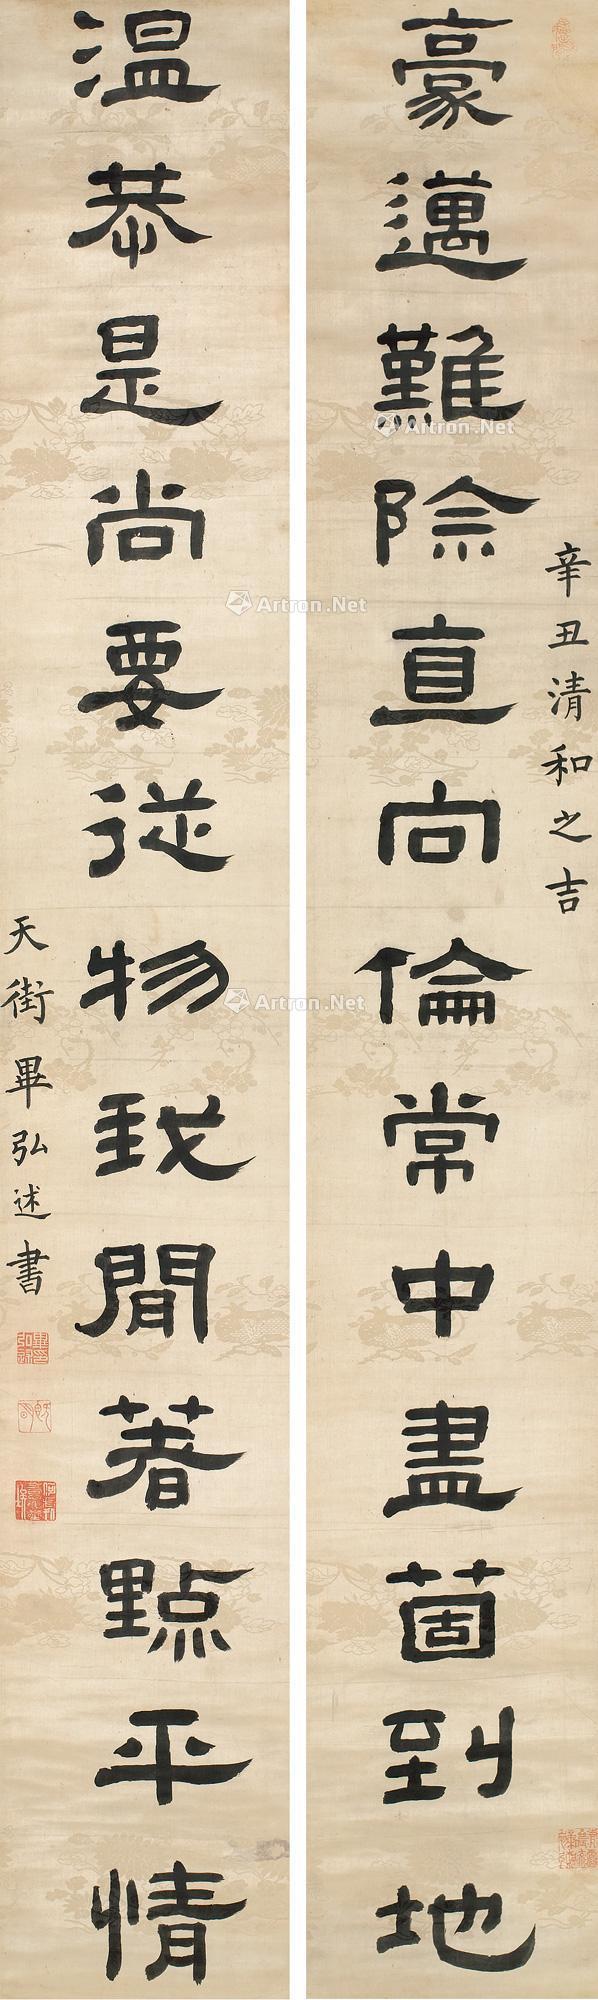 豪邁難除直向倫常中盡箇到地
辛丑清和之吉
溫恭是尚要從物我閒著點平情
天街畢弘述書
Artron.Net
Artron.Net
Artron.Net
Artron.Net